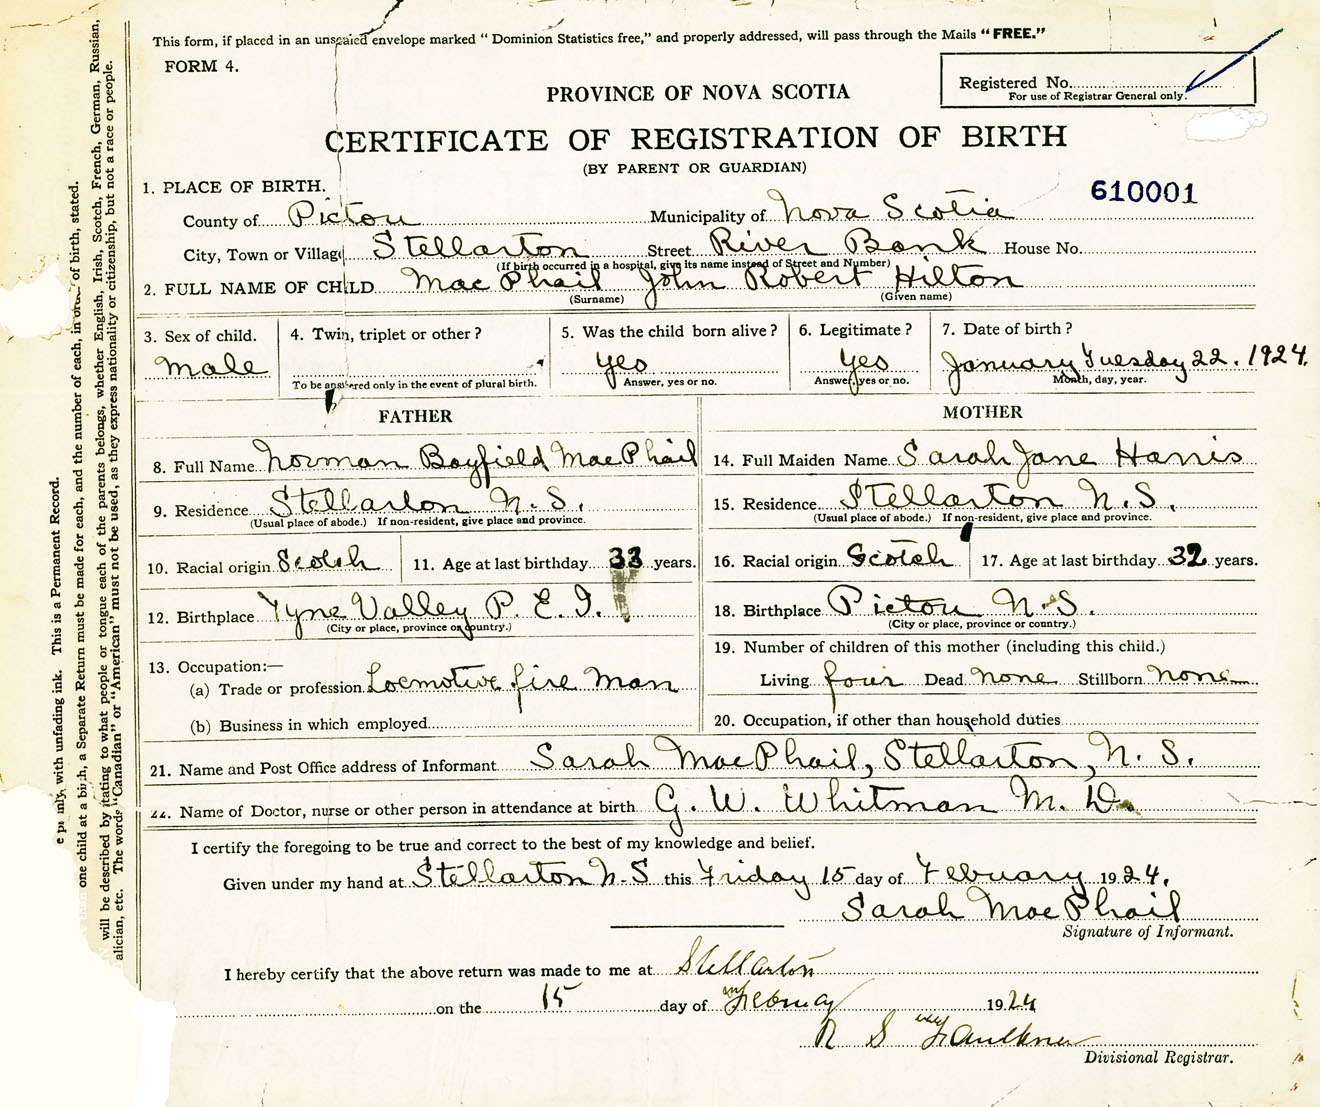 This form, if placed in an unsealed envelope marked "Dominion Statistics free," and properly addressed, will pass through the Mails "FREE."
FORM 4.
Registered No.
For use of Registrar General only.
PROVINCE OF NOVA SCOTIA
CERTIFICATE OF REGISTRATION OF BIRTH
(BY PARENT OR GUARDIAN)
610001
1. PLACE OF BIRTH.
County of Pictou Municipality of Nova Scotia
City, Town or Village Stellarton Street River Bank House No.
(If birth occurred in a hospital, give its name instead of Street and Number)
2. FULL NAME OF CHILD MacPhail John Robert Hilton
(Surname) (Given name)
3. Sex of child. Male
4. Twin, triplet or other?
To be answered only in the event of plural birth.
5. Was the child born alive? yes
Answer, yes or no.
6. Legitimate? yes
Answer, yes or no.
7. Date of birth? January Tuesday 22. 1924.
Month, day, year.
FATHER
8. Full Name Norman Bayfield MacPhail
9. Residence Stellarton N.S.
(Usual place of abode.) If non-resident, give place and province.
10. Racial origin Scotch 11. Age at last birthday 33 years.
12. Birthplace Tyne Valley P. E. I.
(City or place, province or country.)
13. Occupation:—
(a) Trade or profession Locmotive fire man
(b) Business in which employed
MOTHER
14. Full Maiden Name Sarah Jane Harris
15. Residence Stellarton N.S.
(Usual place of abode.) If non-resident, give place and province.
16. Racial origin Scotch 17. Age at last birthday 32 years.
18. Birthplace Pictou N.S.
(City or place, province or country.)
19. Number of children of this mother (including this child.)
Living four Dead none Stillborn none
20. Occupation, if other than household duties
21. Name and Post Office address of Informant Sarah MacPhail, Stellarton, N. S.
22. Name of Doctor, nurse or other person in attendance at birth G. W. Whitman M. D.
I certify the foregoing to be true and correct to the best of my knowledge and belief.
Given under my hand at Stellarton N.S this Friday 15 day of February 1924.
Sarah MacPhail
Signature of Informant.
I hereby certify that the above return was made to me at Stellarton
on the 15 day of February 1924
R S Faulkner
Divisional Registrar.
with unfading ink. This is a Permanent Record.
one child at a birth, a Separate Return must be made for each, and the number of each, in order of birth, stated.
will be described by stating to what people or tongue each of the parents belongs, whether English, Irish, Scotch, French, German, Russian,
alician, etc. The words "Canadian" or "American" must not be used, as they express nationality or citizenship, but not a race or people.